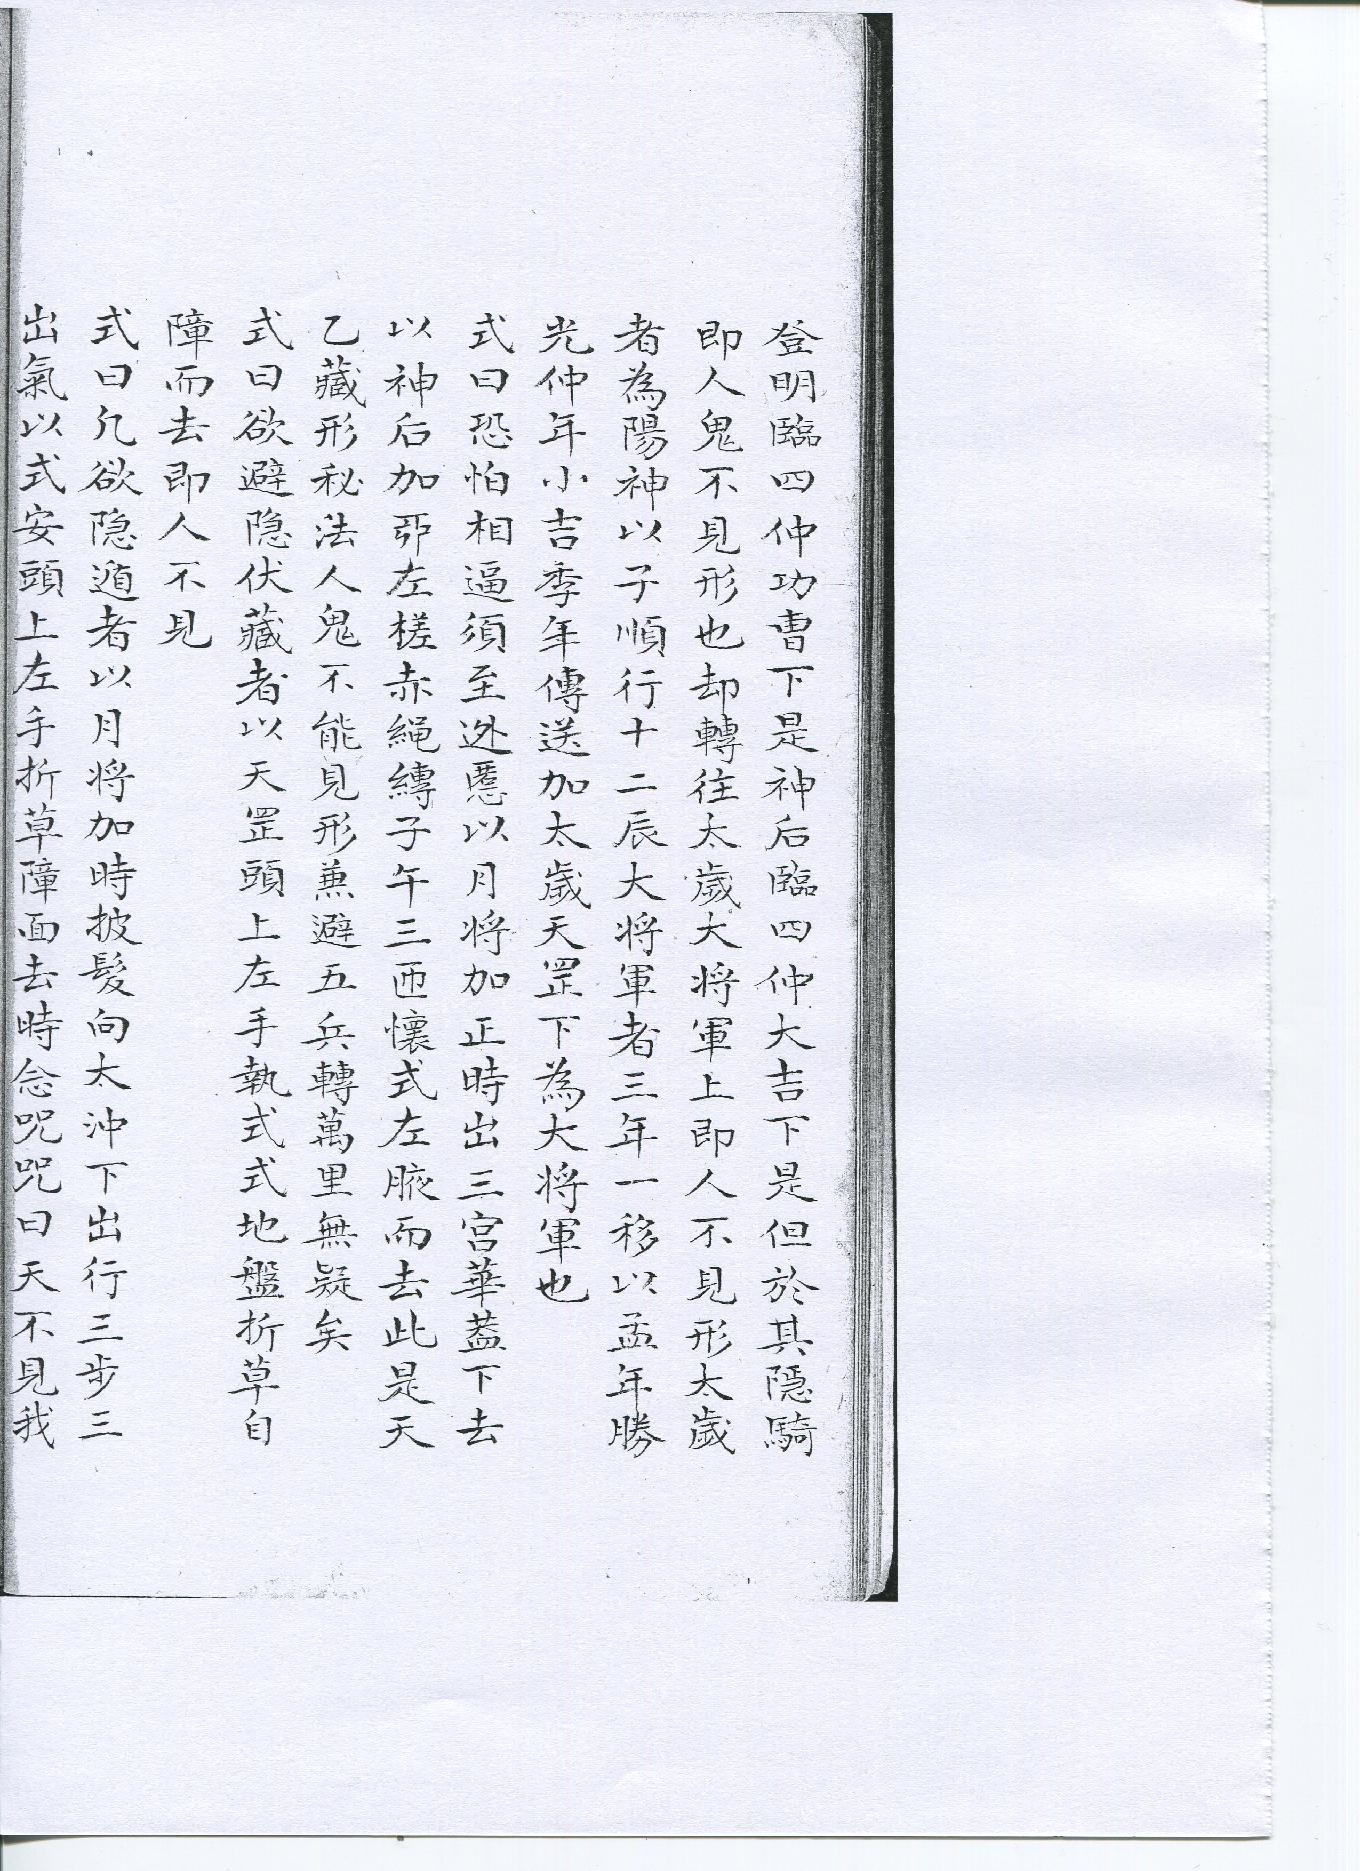 登明臨四仲功曹下是神后臨四仲大吉下是但於其隱騎
即人鬼不見形也却轉往太歲大将軍上即人不見形太歲
者為陽神以子順行十二辰大将軍者三年一移以孟年勝
光仲年小吉季年傳送加太歲天罡下為大将軍也
式曰恐怕相逼須至迯慝以月将加正時出三宫華蓋下去
以神后加丣左槎赤繩縛子午三匝懷式左腋而去此是天
乙藏形秘法人鬼不能見形兼避五兵轉萬里無疑矣
式曰欲避隐伏藏者以天罡頭上左手執式式地盤折草自
障而去即人不見
式曰凢欲隐遁者以月将加時披髮向太沖下出行三步三
出氣以式安頭上左手折草障面去時念呪呪曰天不見我